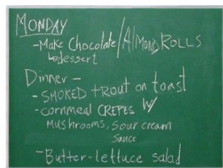 MONDAY
-Make Chocolate/Almond ROLLS
dessert
Dinner -
- SMOKED trout on toast
- cornmeal CREPES W/
Mushrooms, Sour cream
Sauce
- Butter-lettuce salad